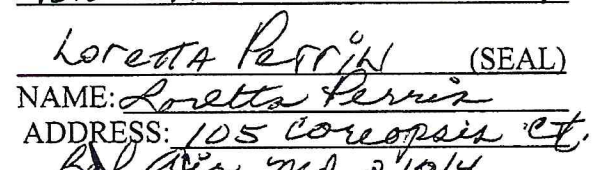 Loretta Perrin (SEAL)
NAME: Loretta Perrin
ADDRESS: 105 Coreopsis Ct.
Bel Air, Md. 21014